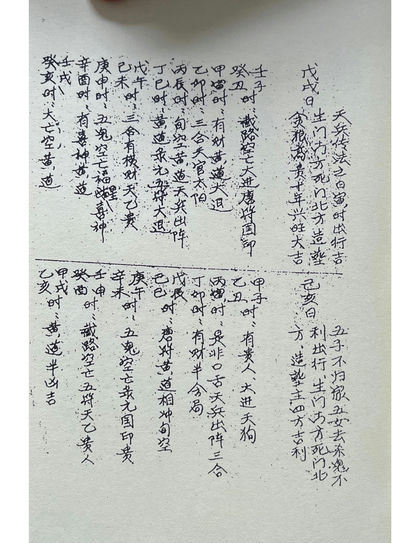 天兵传法之白寅时出行吉
生门南方死门北方造塟
金银高贵十年兴旺大吉
戊戌日
壬子时：截路空亡大进唐符国印
癸丑
甲寅时：有财黄道大退
乙卯时：三合天官太阳
丙辰时：旬空黄道天兵出阵
丁巳时：黄道录元唐符大退
戊午时：三合有救财天乙贵
己未
庚申时：五鬼空亡福星喜神
辛酉时：有喜神黄道
壬戌
癸亥时：大亡空黄道
五子不归家五女去来鬼不
利出行 生门南方死门北
方 造塟主四方吉利
己亥日
甲子时：有贵人、大进天狗
乙丑
丙寅时：是非口舌天兵出阵三合
丁卯时：有财半合局
戊辰
己巳时：唐符黄道相冲旬空
庚午时：五鬼空亡录元国印贵
辛未
壬申时：截路空亡五符天乙贵人
癸酉
甲戌时：黄道半凶吉
乙亥